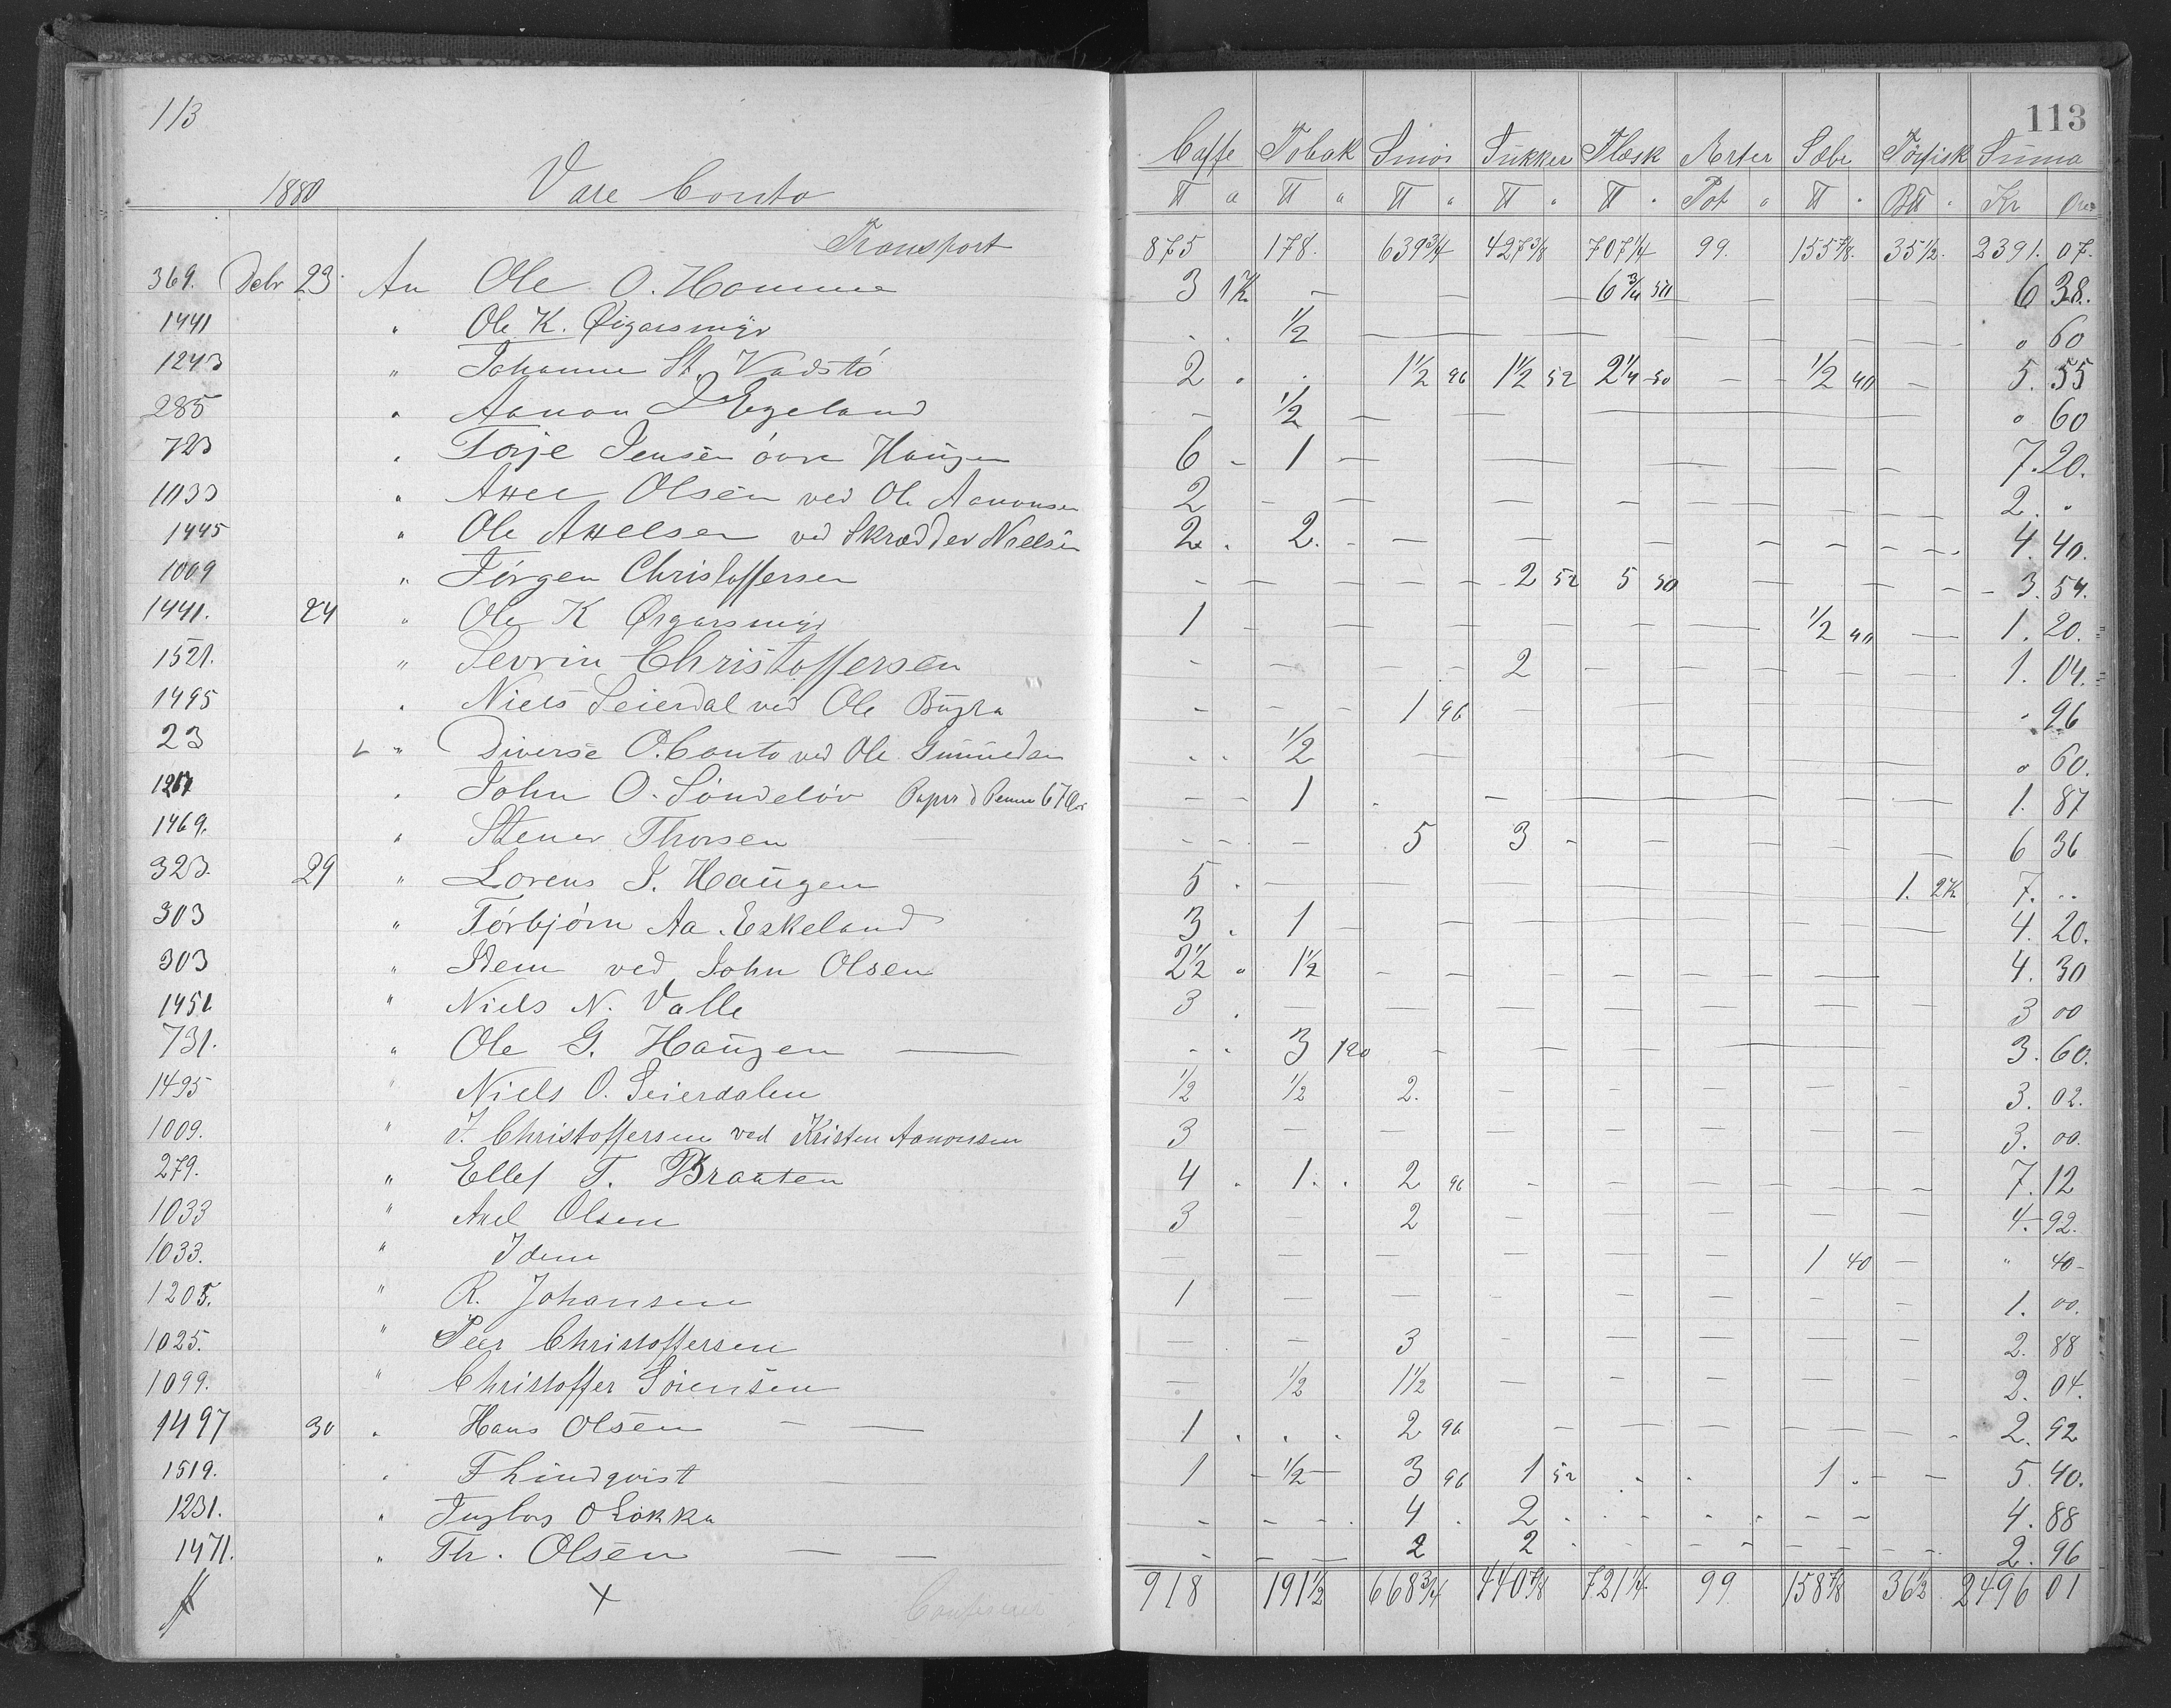 113
113
Caffe Tobak Smør Sukker Flæsk Erter Sæbe Törfisk Suma
1880 Vare Conto ℔ a ℔ a ℔ " ℔ " ℔ " Pot " ℔ " B℔ " Kr Øre
Transport 875 178. 639 3/4 427 3/8 707 1/4 99. 155 7/8. 35 1/2. 2391. 07.
369. Debr 23. An Ole O. Homme 3 1K — — — 6 3/4 50 — — — 6 38.
1441 " Ole K. Øigarsmyr . . 1/2 — — — — — — " 60
1243 " Johanne St. Vadstö 2 . . 1 1/2 96 1 1/2 52 2 1/4 50 — — 1/2 40 — 5. 55
285 " Aanon J Egeland — 1/2 — — — — — — " 60
723 " Torje Jensen övre Haugen 6 - 1 — — — — — — 7. 20.
1033 " Axel Olsen ved Ole Aanonsen 2 — — — — — — — 2. "
1445 " Ole Axelsen ved Skrædder Nielsen 2. 2. — — — — — — 4. 40.
1009 " Jörgen Christoffersen — — — 2 52 5 50 — — — 3. 54.
1441. 24 " Ole K Øigarsmyr 1 — — — — — 1/2 40 — 1. 20.
1521. " Sevrin Christoffersen — — — 2 — — — — 1. 04.
1495 " Niels Seierdal ved Ole Bugta — — 1 96 — — — — — " 96
23 " Diverse O. Conto ved Ole . . 1/2 — — — — — — " 60.
1267 " John O. Söndelöv Papir 67 Øre — 1 . — — — — — 1. 87
1469. " Stener Thorsen — — 5 3 — — — — 6 36
323. 29 " Lorens J. Haugen 5 . — — — — — — 1. 2K 7. ..
303 " Törbjörn Aa. Eskeland 3 . 1 — — — — — — 4. 20.
303 " Idem ved John Olsen 2 1/2 " 1 1/2 — — — — — — 4. 30
1451 " Niels N. Valle 3 . — — — — — — — 3 00
731. " Ole G. Haugen — . . 3 120 — — — — — 3. 60.
1495 " Niels O. Seierdalen 1/2 1/2 2. — — — — — 3. 02.
1009. " J. Christoffersen ved Kristen Aanonsen 3 — — — — — — — 3. 00.
279. " Ellef T. Braaten 4 . 1. . 2 96 — — — — — 7. 12
1033 " Axel Olsen 3 — 2 — — — — — 4. 92.
1033. " Idem — — — — — — 1 40 — " 40-
1205. " R. Johansen 1 — — — — — — — 1. 00.
1025. " Peer Christoffersen — — 3 — — — — — 2. 88
1099. " Christoffer Sörensen — 1/2 1 1/2 — — — — — 2. 04.
1497 30 " Hans Olsen — — 1 . . . 2 96 — — — — — 2. 92
1519. " F Lindqvist — 1 — 1/2 — 3 96 1 52 . . 1 . — — 5. 40.
1231. " O Lökka — — — 4 . 2 . . . — — 4. 88
1471. " Th. Olsen — — — — — 2 2 — — — — — 2. 96
X 918 191 1/2 668 3/4 440 7/8 721 1/4. 99 158 7/8 36 1/2 2496 01